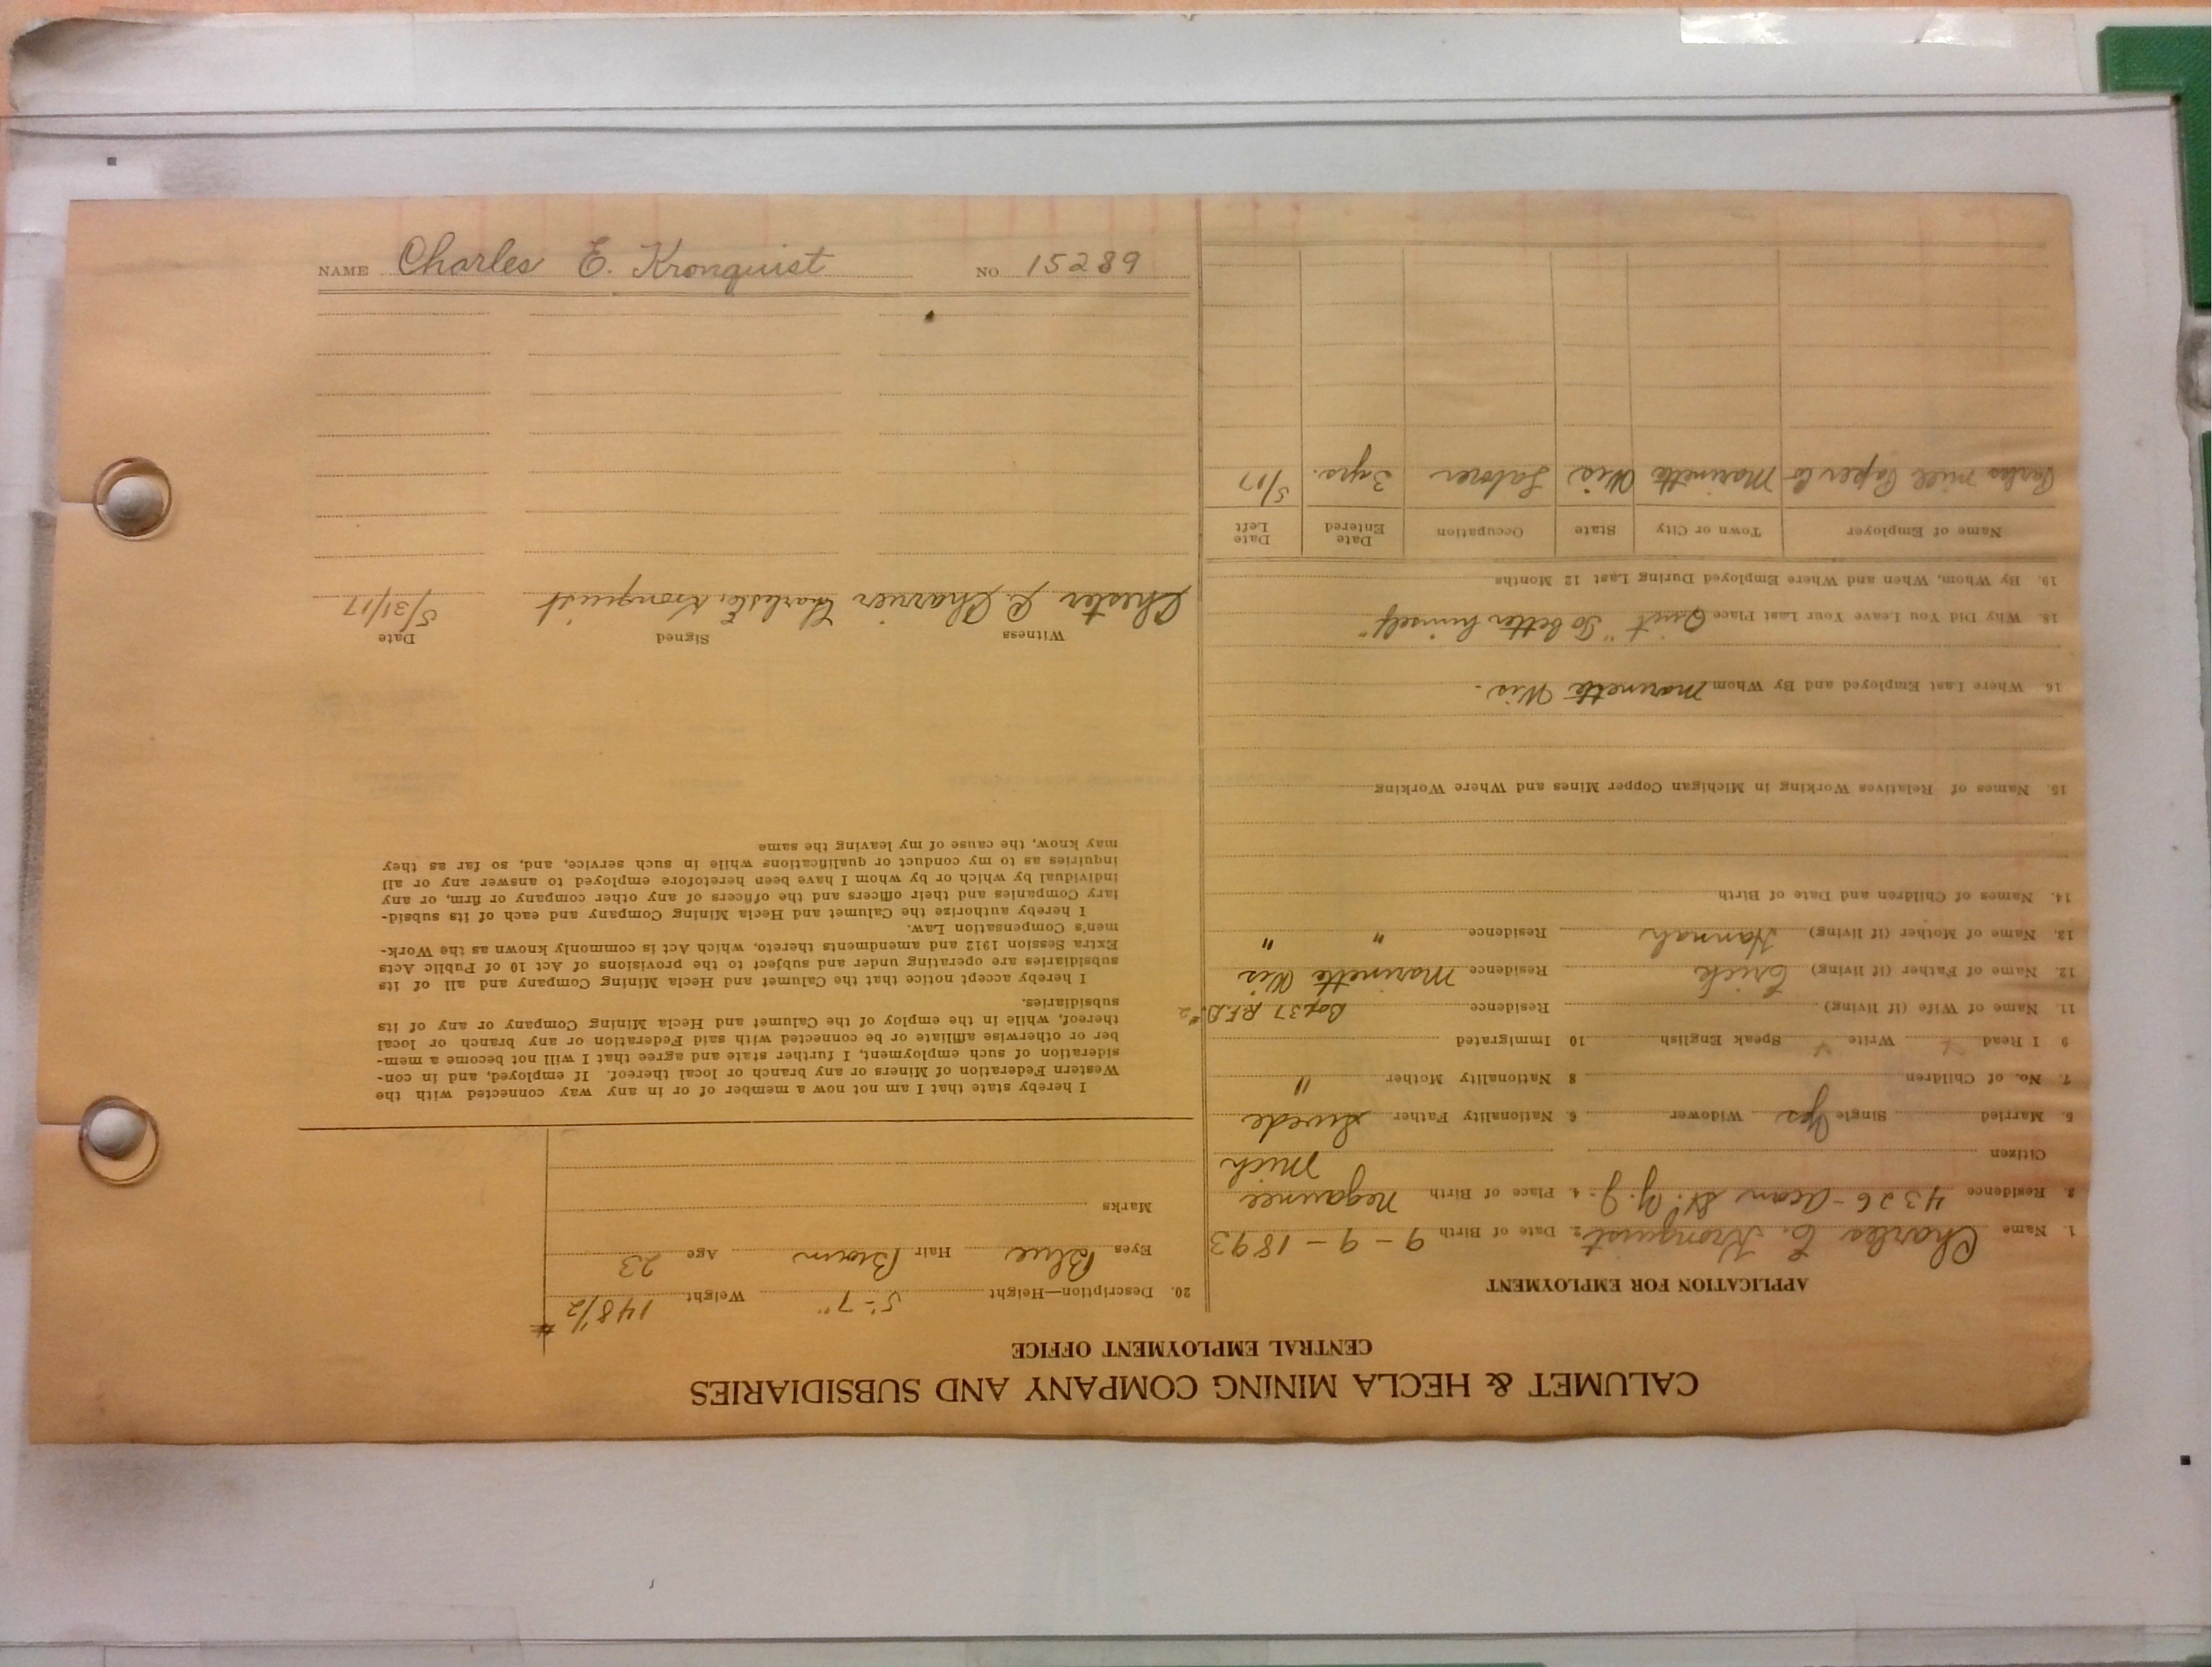 NAME Charles E. Kronquist NO 15289
CALUMET & HECLA MINING COMPANY AND SUBSIDIARIES
CENTRAL EMPLOYMENT OFFICE
APPLICATION FOR EMPLOYMENT
1. Name Charles E. Kronquist 2 Date of Birth 9-9-1893
3 Residence 4326- St. 4. Place of Birth Negaunee
Citizen Mich
5. Married Single Yes Widower 6. Nationality Father Swede
7. No. of Children 8 Nationality Mother "
9 I Read Write Speak English 10 Immigrated
11. Name of Wife (if living) Residence Box 37 R.F.D. #2
12. Name of Father (if living) Erick Residence Marinette Wis
13. Name of Mother (if living) Hannah Residence " "
14. Names of Children and Date of Birth
15. Names of Relatives Working in Michigan Copper Mines and Where Working
16 Where Last Employed and By Whom Marinette Wis.
18. Why Did You Leave Your Last Place Quit "To better himself"
19. By Whom, When and Where Employed During Last 12 Months
Name of Employer Town or City State Occupation Date Entered Date Left
mill Paper Co Marinette Wis Laborer 3 yrs. 5/17
20. Description—Height 5'-7" Weight 148 1/2 #
Eyes Blue Hair Brown Age 23
Marks
I hereby state that I am not now a member of or in any way connected with the
Western Federation of Miners or any branch or local thereof. If employed, and in con-
sideration of such employment, I further state and agree that I will not become a mem-
ber or otherwise affiliate or be connected with said Federation or any branch or local
thereof, while in the employ of the Calumet and Hecla Mining Company or any of its
subsidiaries.
I hereby accept notice that the Calumet and Hecla Mining Company and all of its
subsidiaries are operating under and subject to the provisions of Act 10 of Public Acts
Extra Session 1912 and amendments thereto, which Act is commonly known as the Work-
men's Compensation Law.
I hereby authorize the Calumet and Hecla Mining Company and each of its subsid-
iary Companies and their officers and the officers of any other company or firm, or any
individual by which or by whom I have been heretofore employed to answer any or all
inquiries as to my conduct or qualifications while in such service, and, so far as they
may know, the cause of my leaving the same
Witness Signed Date
Chester Charles E. Kronquist 5/31/17